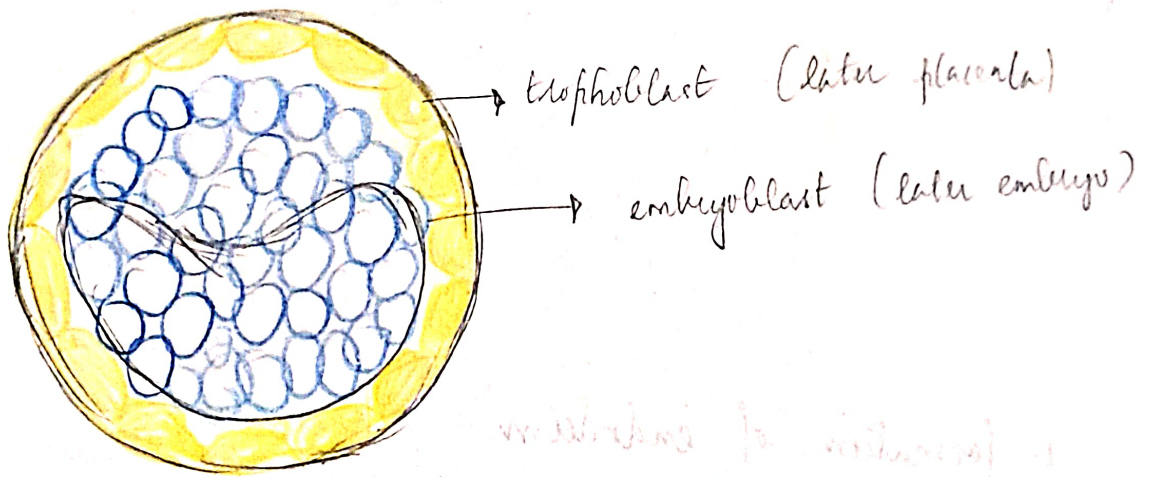 trophoblast (later placenta)
embryoblast (later embryo)